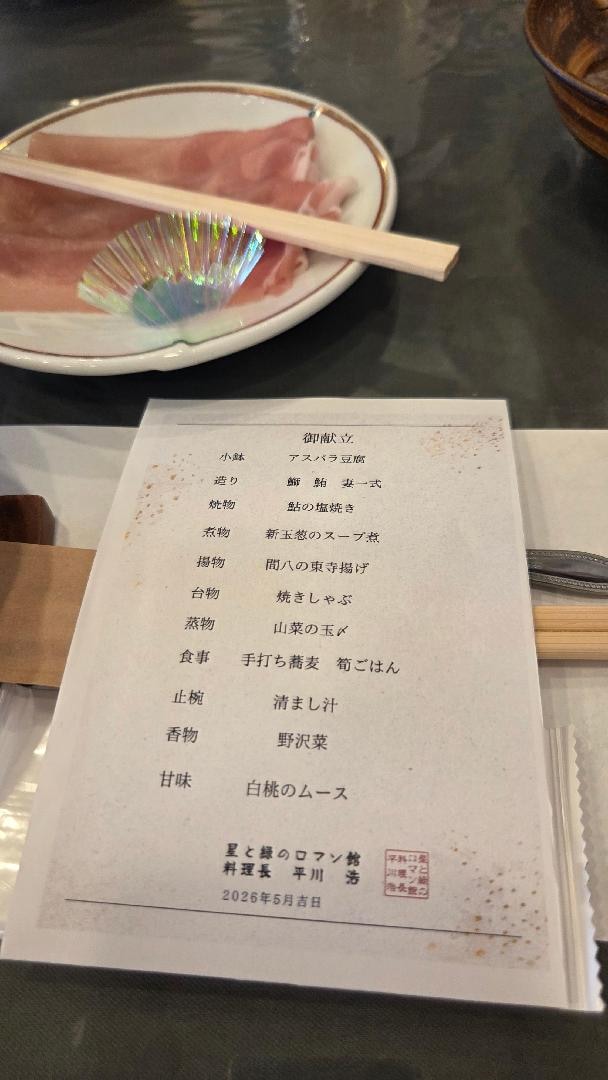 御献立
小鉢 アスパラ豆腐
造り 鰤 鮪 妻一式
焼物 鮎の塩焼き
煮物 新玉葱のスープ煮
揚物 間八の東寺揚げ
台物 焼きしゃぶ
蒸物 山菜の玉〆
食事 手打ち蕎麦 筍ごはん
止椀 清まし汁
香物 野沢菜
甘味 白桃のムース
星と緑のロマン館
料理長 平川 浩
2026年5月吉日
星と緑の
ロマン館
料理長
平川浩